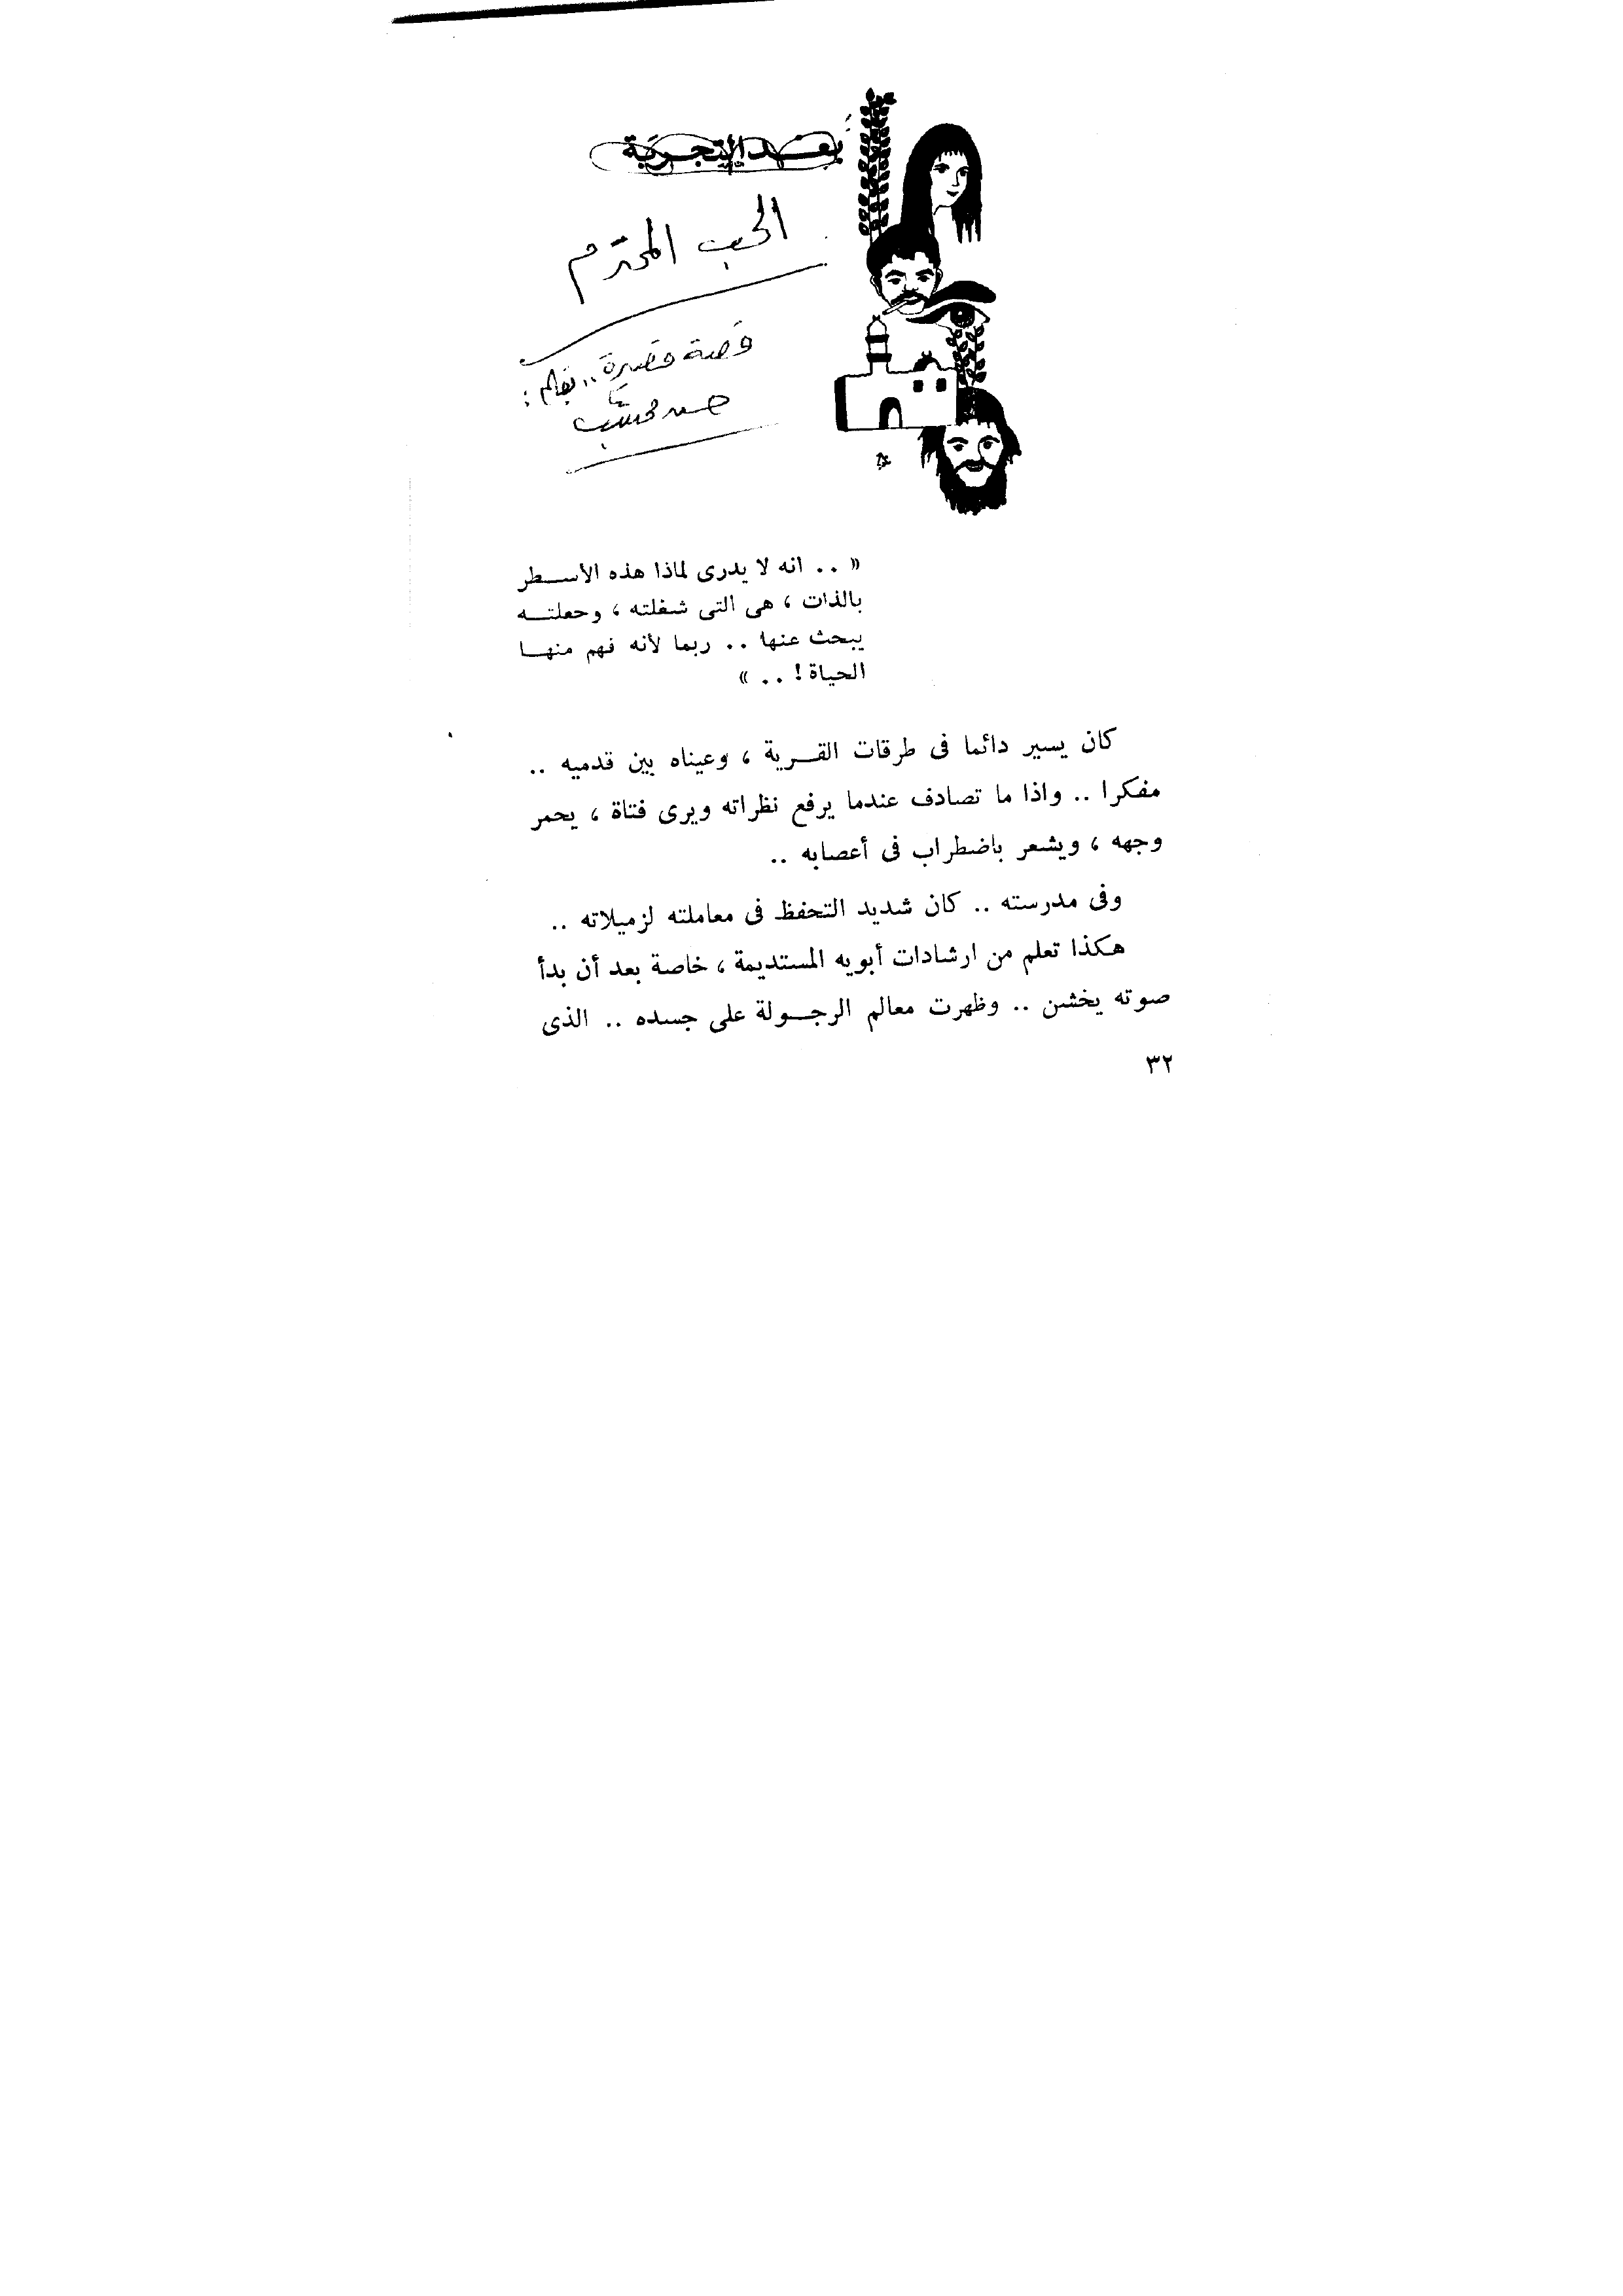 بعد التجربة
الحب المحترم
قصة قصيرة .. بقلم :
حسن محتسب
« .. انه لا يدرى لماذا هذه الأسطر
بالذات ، هى التى شغلته ، وجعلته
يبحث عنها .. ربما لأنه فهم منها
الحياة ! .. »
كان يسير دائما فى طرقات القرية ، وعيناه بين قدميه ..
مفكرا .. واذا ما تصادف عندما يرفع نظراته ويرى فتاة ، يحمر
وجهه ، ويشعر باضطراب فى أعصابه ..
وفى مدرسته .. كان شديد التحفظ فى معاملته لزميلاته ..
هكذا تعلم من ارشادات أبويه المستديمة ، خاصة بعد أن بدأ
صوته يخشن .. وظهرت معالم الرجولة على جسده .. الذى
٣٢